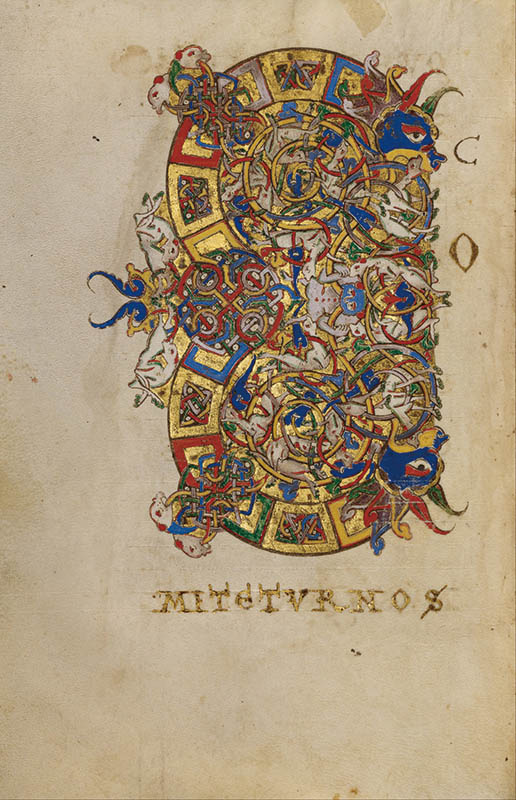 E C
O
MITATVR NOS